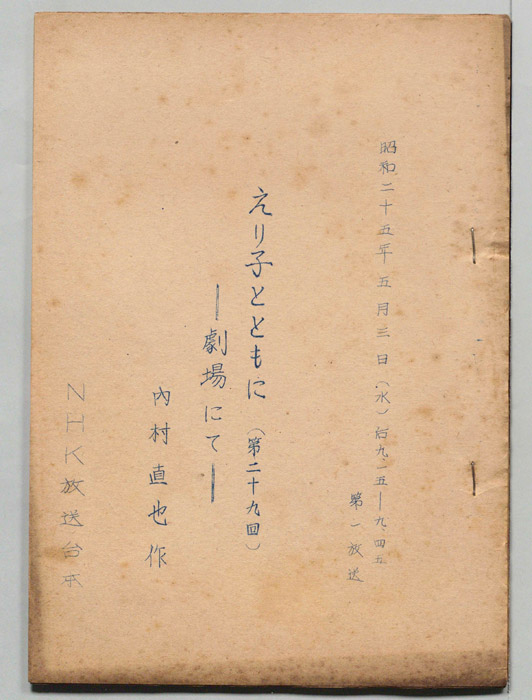 昭和二十五年五月三日（水）后九・一五―九・四五
第一放送
えり子とともに（第二十九回）
―劇場にて―
内村直也作
NHK放送台本